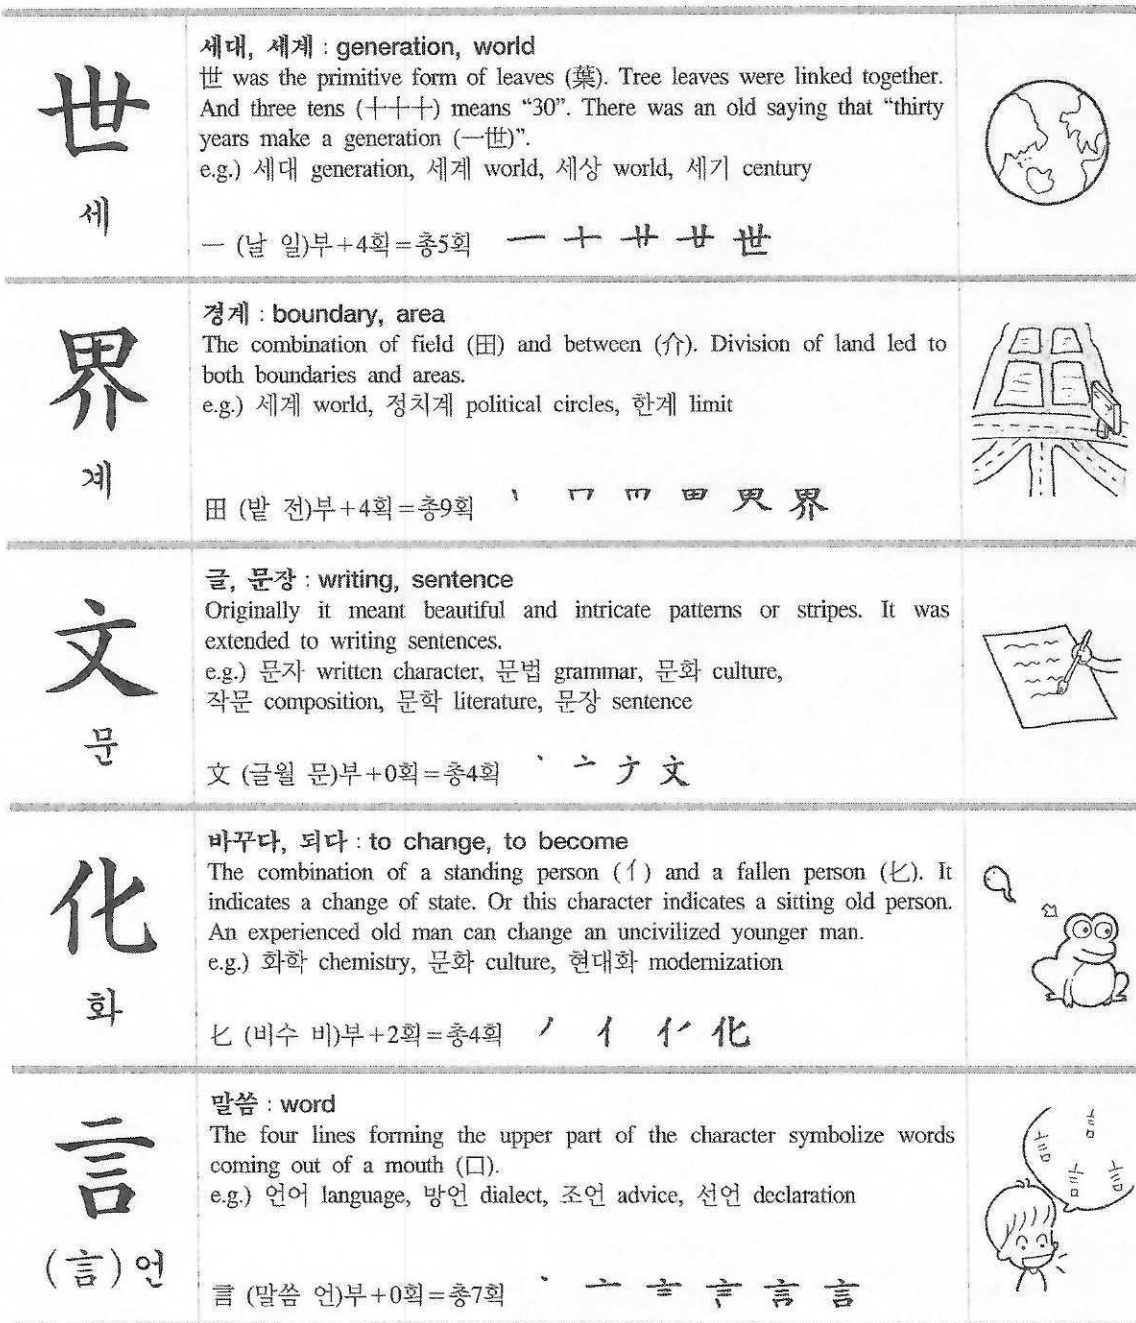 世
세
세대, 세계 : generation, world
世 was the primitive form of leaves (葉). Tree leaves were linked together.
And three tens (十十十) means “30”. There was an old saying that “thirty
years make a generation (一世)”.
e.g.) 세대 generation, 세계 world, 세상 world, 세기 century
一 (날 일)부+4획=총5획 一 十 廾 世
界
계
경계 : boundary, area
The combination of field (田) and between (介). Division of land led to
both boundaries and areas.
e.g.) 세계 world, 정치계 political circles, 한계 limit
田 (밭 전)부+4획=총9획 丶 冖 田 界
文
문
글, 문장 : writing, sentence
Originally it meant beautiful and intricate patterns or stripes. It was
extended to writing sentences.
e.g.) 문자 written character, 문법 grammar, 문화 culture,
작문 composition, 문학 literature, 문장 sentence
文 (글월 문)부+0획=총4획 丶 亠 文
化
화
바꾸다, 되다 : to change, to become
The combination of a standing person (亻) and a fallen person (匕). It
indicates a change of state. Or this character indicates a sitting old person.
An experienced old man can change an uncivilized younger man.
e.g.) 화학 chemistry, 문화 culture, 현대화 modernization
匕 (비수 비)부+2획=총4획 丿 亻 化
言
(言) 언
말씀 : word
The four lines forming the upper part of the character symbolize words
coming out of a mouth (口).
e.g.) 언어 language, 방언 dialect, 조언 advice, 선언 declaration
言 (말씀 언)부+0획=총7획 丶 亠 言 言